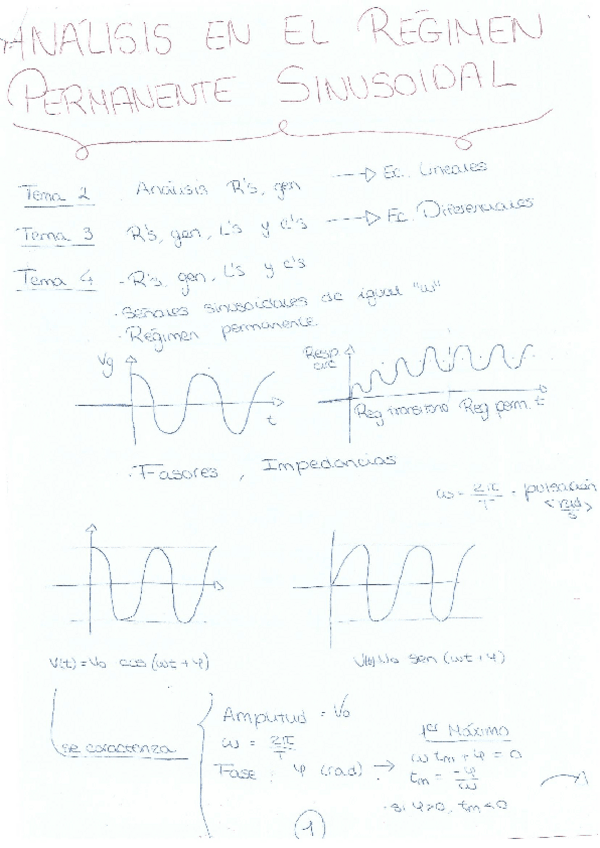 ANÁLISIS EN EL RÉGIMEN
PERMANENTE SINUSOIDAL
Tema 2 Análisis R's, gen ---> Ec. Lineales
Tema 3 R's, gen, L's y C's ---> Ec. Diferenciales
Tema 4 - R's, gen, L's y C's
· Señales sinusoidales de igual "ω"
· Régimen permanente
Vg
t
Resp
circ
Reg transitorio Reg perm. t
· Fasores, Impedancias
ω = 2π/T = pulsación
<rad/s>
V(t) = Vo cos (ωt + φ)
V(t) = Vo sen (ωt + φ)
se caracteriza
Amplitud = Vo
ω = 2π/T
Fase: φ (rad) →
1er Máximo
ω tm + φ = 0
tm = -φ/ω
· si φ>0, tm<0
1